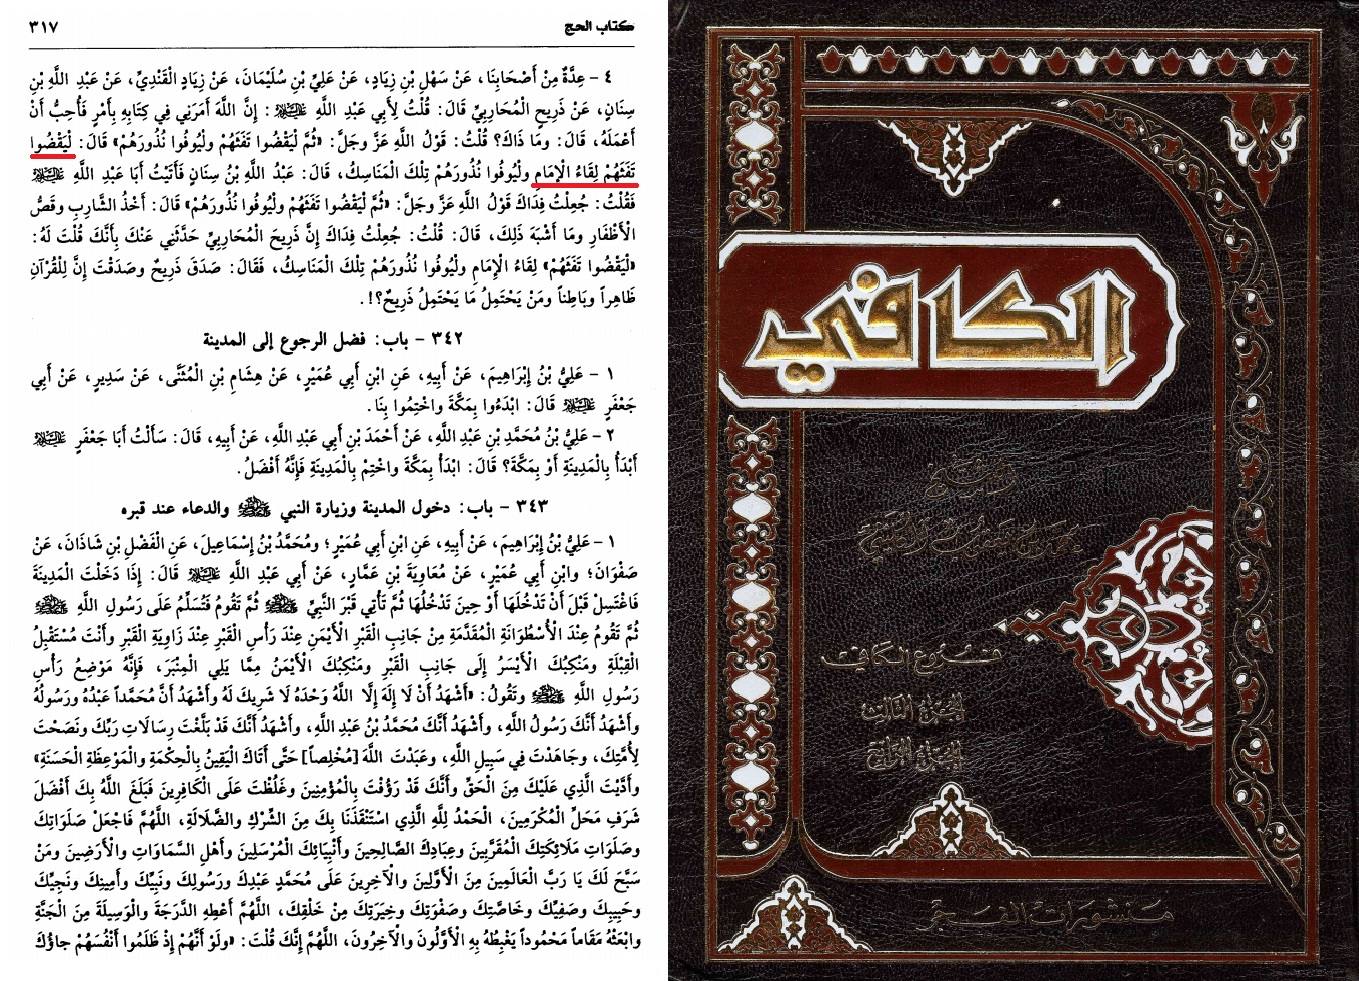 كتاب الحج
٣١٧
٤ - عِدَّةٌ مِنْ أَصْحَابِنَا، عَنْ سَهْلِ بْنِ زِيَادٍ، عَنْ عَلِيِّ بْنِ سُلَيْمَانَ، عَنْ زِيَادٍ الْقَنْدِيِّ، عَنْ عَبْدِ اللَّهِ بْنِ
سِنَانٍ، عَنْ ذَرِيحٍ الْمُحَارِبِيِّ قَالَ: قُلْتُ لِأَبِي عَبْدِ اللَّهِ عليه السلام: إِنَّ اللَّهَ أَمَرَنِي فِي كِتَابِهِ بِأَمْرٍ فَأُحِبُّ أَنْ
أَعْمَلَهُ، قَالَ: وَمَا ذَاكَ؟ قُلْتُ: قَوْلُ اللَّهِ عَزَّ وجَلَّ: «ثُمَّ لْيَقْضُوا تَفَثَهُمْ ولْيُوفُوا نُذُورَهُمْ» قَالَ: لْيَقْضُوا
تَفَثَهُمْ لِقَاءُ الْإِمَامِ ولْيُوفُوا نُذُورَهُمْ تِلْكَ الْمَنَاسِكُ، قَالَ: عَبْدُ اللَّهِ بْنُ سِنَانٍ فَأَتَيْتُ أَبَا عَبْدِ اللَّهِ عليه السلام
فَقُلْتُ: جُعِلْتُ فِدَاكَ قَوْلُ اللَّهِ عَزَّ وجَلَّ: «ثُمَّ لْيَقْضُوا تَفَثَهُمْ ولْيُوفُوا نُذُورَهُمْ» قَالَ: أَخْذُ الشَّارِبِ وقَصُّ
الْأَظْفَارِ ومَا أَشْبَهَ ذَلِكَ، قَالَ: قُلْتُ: جُعِلْتُ فِدَاكَ إِنَّ ذَرِيحَ الْمُحَارِبِيِّ حَدَّثَنِي عَنْكَ بِأَنَّكَ قُلْتَ لَهُ:
«لْيَقْضُوا تَفَثَهُمْ» لِقَاءُ الْإِمَامِ ولْيُوفُوا نُذُورَهُمْ تِلْكَ الْمَنَاسِكُ، فَقَالَ: صَدَقَ ذَرِيحٌ وصَدَقْتَ إِنَّ لِلْقُرْآنِ
ظَاهِراً وبَاطِناً ومَنْ يَحْتَمِلُ مَا يَحْتَمِلُ ذَرِيحٌ؟!.
٣٤٢ - باب: فضل الرجوع إلى المدينة
١ - عَلِيُّ بْنُ إِبْرَاهِيمَ، عَنْ أَبِيهِ، عَنِ ابْنِ أَبِي عُمَيْرٍ، عَنْ هِشَامِ بْنِ الْمُثَنَّى، عَنْ سَدِيرٍ، عَنْ أَبِي
جَعْفَرٍ عليه السلام قَالَ: ابْدَءُوا بِمَكَّةَ واخْتِمُوا بِنَا.
٢ - عَلِيُّ بْنُ مُحَمَّدِ بْنِ عَبْدِ اللَّهِ، عَنْ أَحْمَدَ بْنِ أَبِي عَبْدِ اللَّهِ، عَنْ أَبِيهِ، قَالَ: سَأَلْتُ أَبَا جَعْفَرٍ عليه السلام
أَبْدَأُ بِالْمَدِينَةِ أَوْ بِمَكَّةَ؟ قَالَ: ابْدَأْ بِمَكَّةَ واخْتِمْ بِالْمَدِينَةِ فَإِنَّهُ أَفْضَلُ.
٣٤٣ - باب: دخول المدينة وزيارة النبي ﷺ والدعاء عند قبره
١ - عَلِيُّ بْنُ إِبْرَاهِيمَ، عَنْ أَبِيهِ، عَنِ ابْنِ أَبِي عُمَيْرٍ؛ ومُحَمَّدُ بْنُ إِسْمَاعِيلَ، عَنِ الْفَضْلِ بْنِ شَاذَانَ، عَنْ
صَفْوَانَ؛ وابْنِ أَبِي عُمَيْرٍ، عَنْ مُعَاوِيَةَ بْنِ عَمَّارٍ، عَنْ أَبِي عَبْدِ اللَّهِ عليه السلام قَالَ: إِذَا دَخَلْتَ الْمَدِينَةَ
فَاغْتَسِلْ قَبْلَ أَنْ تَدْخُلَهَا أَوْ حِينَ تَدْخُلُهَا ثُمَّ تَأْتِي قَبْرَ النَّبِيِّ ﷺ ثُمَّ تَقُومُ فَتُسَلِّمُ عَلَى رَسُولِ اللَّهِ ﷺ
ثُمَّ تَقُومُ عِنْدَ الْأُسْطُوَانَةِ الْمُقَدَّمَةِ مِنْ جَانِبِ الْقَبْرِ الْأَيْمَنِ عِنْدَ رَأْسِ الْقَبْرِ عِنْدَ زَاوِيَةِ الْقَبْرِ وأَنْتَ مُسْتَقْبِلُ
الْقِبْلَةِ ومَنْكِبُكَ الْأَيْسَرُ إِلَى جَانِبِ الْقَبْرِ ومَنْكِبُكَ الْأَيْمَنُ مِمَّا يَلِي الْمِنْبَرَ، فَإِنَّهُ مَوْضِعُ رَأْسِ
رَسُولِ اللَّهِ ﷺ وتَقُولُ: «أَشْهَدُ أَنْ لَا إِلَهَ إِلَّا اللَّهُ وَحْدَهُ لَا شَرِيكَ لَهُ وأَشْهَدُ أَنَّ مُحَمَّداً عَبْدُهُ ورَسُولُهُ
وأَشْهَدُ أَنَّكَ رَسُولُ اللَّهِ، وأَشْهَدُ أَنَّكَ مُحَمَّدُ بْنُ عَبْدِ اللَّهِ، وأَشْهَدُ أَنَّكَ قَدْ بَلَّغْتَ رِسَالَاتِ رَبِّكَ ونَصَحْتَ
لِأُمَّتِكَ، وجَاهَدْتَ فِي سَبِيلِ اللَّهِ، وعَبَدْتَ اللَّهَ [مُخْلِصاً] حَتَّى أَتَاكَ الْيَقِينُ بِالْحِكْمَةِ والْمَوْعِظَةِ الْحَسَنَةِ»
وأَدَّيْتَ الَّذِي عَلَيْكَ مِنَ الْحَقِّ وأَنَّكَ قَدْ رَؤُفْتَ بِالْمُؤْمِنِينَ وغَلُظْتَ عَلَى الْكَافِرِينَ فَبَلَغَ اللَّهُ بِكَ أَفْضَلَ
شَرَفِ مَحَلِّ الْمُكْرَمِينَ، الْحَمْدُ لِلَّهِ الَّذِي اسْتَنْقَذَنَا بِكَ مِنَ الشِّرْكِ والضَّلَالَةِ، اللَّهُمَّ فَاجْعَلْ صَلَوَاتِكَ
وصَلَوَاتِ مَلَائِكَتِكَ الْمُقَرَّبِينَ وعِبَادِكَ الصَّالِحِينَ وأَنْبِيَائِكَ الْمُرْسَلِينَ وأَهْلِ السَّمَاوَاتِ والْأَرَضِينَ ومَنْ
سَبَّحَ لَكَ يَا رَبَّ الْعَالَمِينَ مِنَ الْأَوَّلِينَ والْآخِرِينَ عَلَى مُحَمَّدٍ عَبْدِكَ ورَسُولِكَ ونَبِيِّكَ وأَمِينِكَ ونَجِيِّكَ
وحَبِيبِكَ وصَفِيِّكَ وخَاصَّتِكَ وصَفْوَتِكَ وخِيَرَتِكَ مِنْ خَلْقِكَ، اللَّهُمَّ أَعْطِهِ الدَّرَجَةَ والْوَسِيلَةَ مِنَ الْجَنَّةِ
وابْعَثْهُ مَقَاماً مَحْمُوداً يَغْبِطُهُ بِهِ الْأَوَّلُونَ والْآخِرُونَ، اللَّهُمَّ إِنَّكَ قُلْتَ: «ولَوْ أَنَّهُمْ إِذْ ظَلَمُوا أَنْفُسَهُمْ جاؤُكَ
الكافي
فروع الكافي
الجزء الثالث
الجزء الرابع
منشورات الفجر